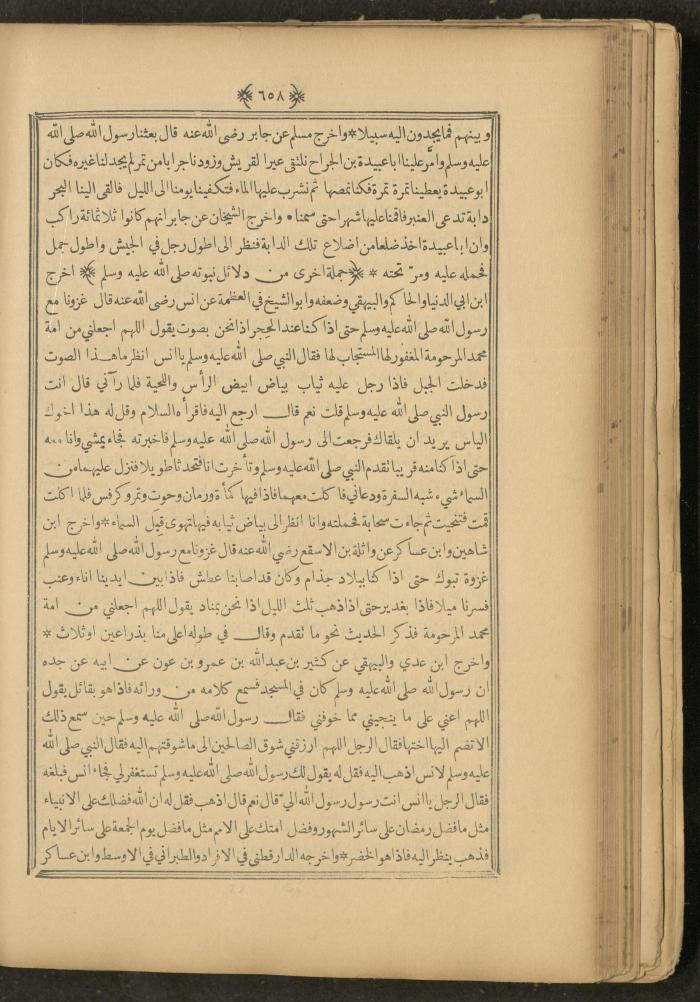 ٦٥٨
وبينهم فما يجدون اليه سبيلا * واخرج مسلم عن جابر رضى الله عنه قال بعثنا رسول الله صلى الله
عليه وسلم وامّر علينا ابا عبيدة بن الجراح نلتقى عيرا لقريش وزودنا جرابا من تمر لم يجد لنا غيره فكان
ابو عبيدة يعطينا تمرة تمرة فكنا نمصها ثم نشرب عليها الماء فتكفينا يومنا الى الليل فالقى الينا البحر
دابة تدعى العنبر فاقمنا عليها شهرا حتى سمنا * واخرج الشيخان عن جابر انهم كانوا ثلاثمائة راكب
وان ابا عبيدة اخذ ضلعا من اضلاع تلك الدابة فنظر الى اطول رجل في الجيش واطول جمل
فحمله عليه ومرّ تحته * ﴿ جملة اخرى من دلائل نبوته صلى الله عليه وسلم ﴾ اخرج
ابن ابي الدنيا والحاكم والبيهقي وضعفه وابو الشيخ في العظمة عن انس رضى الله عنه قال غزونا مع
رسول الله صلى الله عليه وسلم حتى اذا كنا عند الحِجر اذا نحن بصوت يقول اللهم اجعلني من امة
محمد المرحومة المغفور لها المستجاب لها فقال النبي صلى الله عليه وسلم يا انس انظر ما هذا الصوت
فدخلت الجبل فاذا رجل عليه ثياب بياض ابيض الرأس واللحية فلما رآني قال انت
رسول النبي صلى الله عليه وسلم قلت نعم قال ارجع اليه فاقرأه السلام وقل له هذا اخوك
الياس يريد ان يلقاك فرجعت الى رسول الله صلى الله عليه وسلم فاخبرته فجاء يمشي وانا معه
حتى اذا كنا منه قريبا تقدم النبي صلى الله عليه وسلم وتأخرت انا فتحدثا طويلا فنزل عليهما من
السماء شيء شبه السفرة ودعاني فاكلت معهما فاذا فيها كمأة ورمان وحوت وتمر وكرفس فلما اكلت
قمت فتنحيت ثم جاءت سحابة فحملته وانا انظر الى بياض ثيابه فيها تهوى قِبَل السماء * واخرج ابن
شاهين وابن عساكر عن واثلة بن الاسقع رضي الله عنه قال غزونا مع رسول الله صلى الله عليه وسلم
غزوة تبوك حتى اذا كنا ببلاد جذام وكان قد اصابنا عطش فاذا بين ايدينا اناء وعنب
فسرنا ميلا فاذا بغدير حتى اذا ذهب ثلث الليل اذا نحن بمناد يقول اللهم اجعلني من امة
محمد المرحومة فذكر الحديث نحو ما تقدم وقال في طوله اعلى منا بذراعين او ثلاث *
واخرج ابن عدي والبيهقي عن كثير بن عبد الله بن عمرو بن عون عن ابيه عن جده
ان رسول الله صلى الله عليه وسلم كان في المسجد فسمع كلامه من ورائه فاذا هو بقائل يقول
اللهم اعني على ما ينجيني مما خوفني فقال رسول الله صلى الله عليه وسلم حين سمع ذلك
الا تضم اليها اختها فقال الرجل اللهم ارزقني شوق الصالحين الى ما شوقتهم اليه فقال النبي صلى الله
عليه وسلم لانس اذهب اليه فقل له يقول لك رسول الله صلى الله عليه وسلم تستغفر لي فجاء انس فبلغه
فقال الرجل يا انس انت رسول رسول الله اليّ قال نعم قال اذهب فقل له ان الله فضلك على الانبياء
مثل ما فضل رمضان على سائر الشهور وفضل امتك على الامم مثل ما فضل يوم الجمعة على سائر الايام
فذهب ينظر اليه فاذا هو الخضر * واخرجه الدارقطني في الافراد والطبراني في الاوسط وابن عساكر